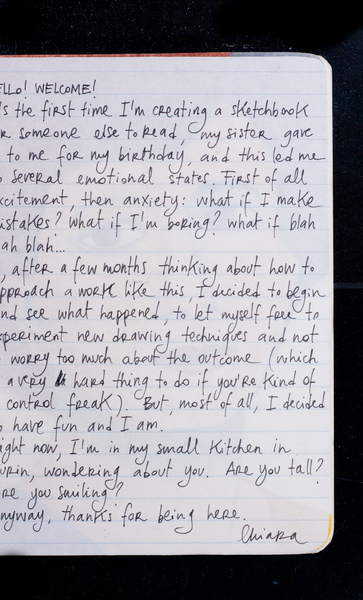 ELLO! WELCOME!
's the first time I'm creating a sketchbook
r someone else to read, my sister gave
to me for my birthday, and this led me
o several emotional states. First of all
xcitement, then anxiety: what if I make
istakes? What if I'm boring? what if blah
ah blah...
, after a few months thinking about how to
pproach a work like this, I decided to begin
nd see what happened, to let myself free to
xperiment new drawing techniques and not
worry too much about the outcome (which
a very hard thing to do if you're kind of
control freak). But, most of all, I decided
o have fun and I am.
ight now, I'm in my small kitchen in
urin, wondering about you. Are you tall?
re you smiling?
nyway, thanks for being here.
Chiara